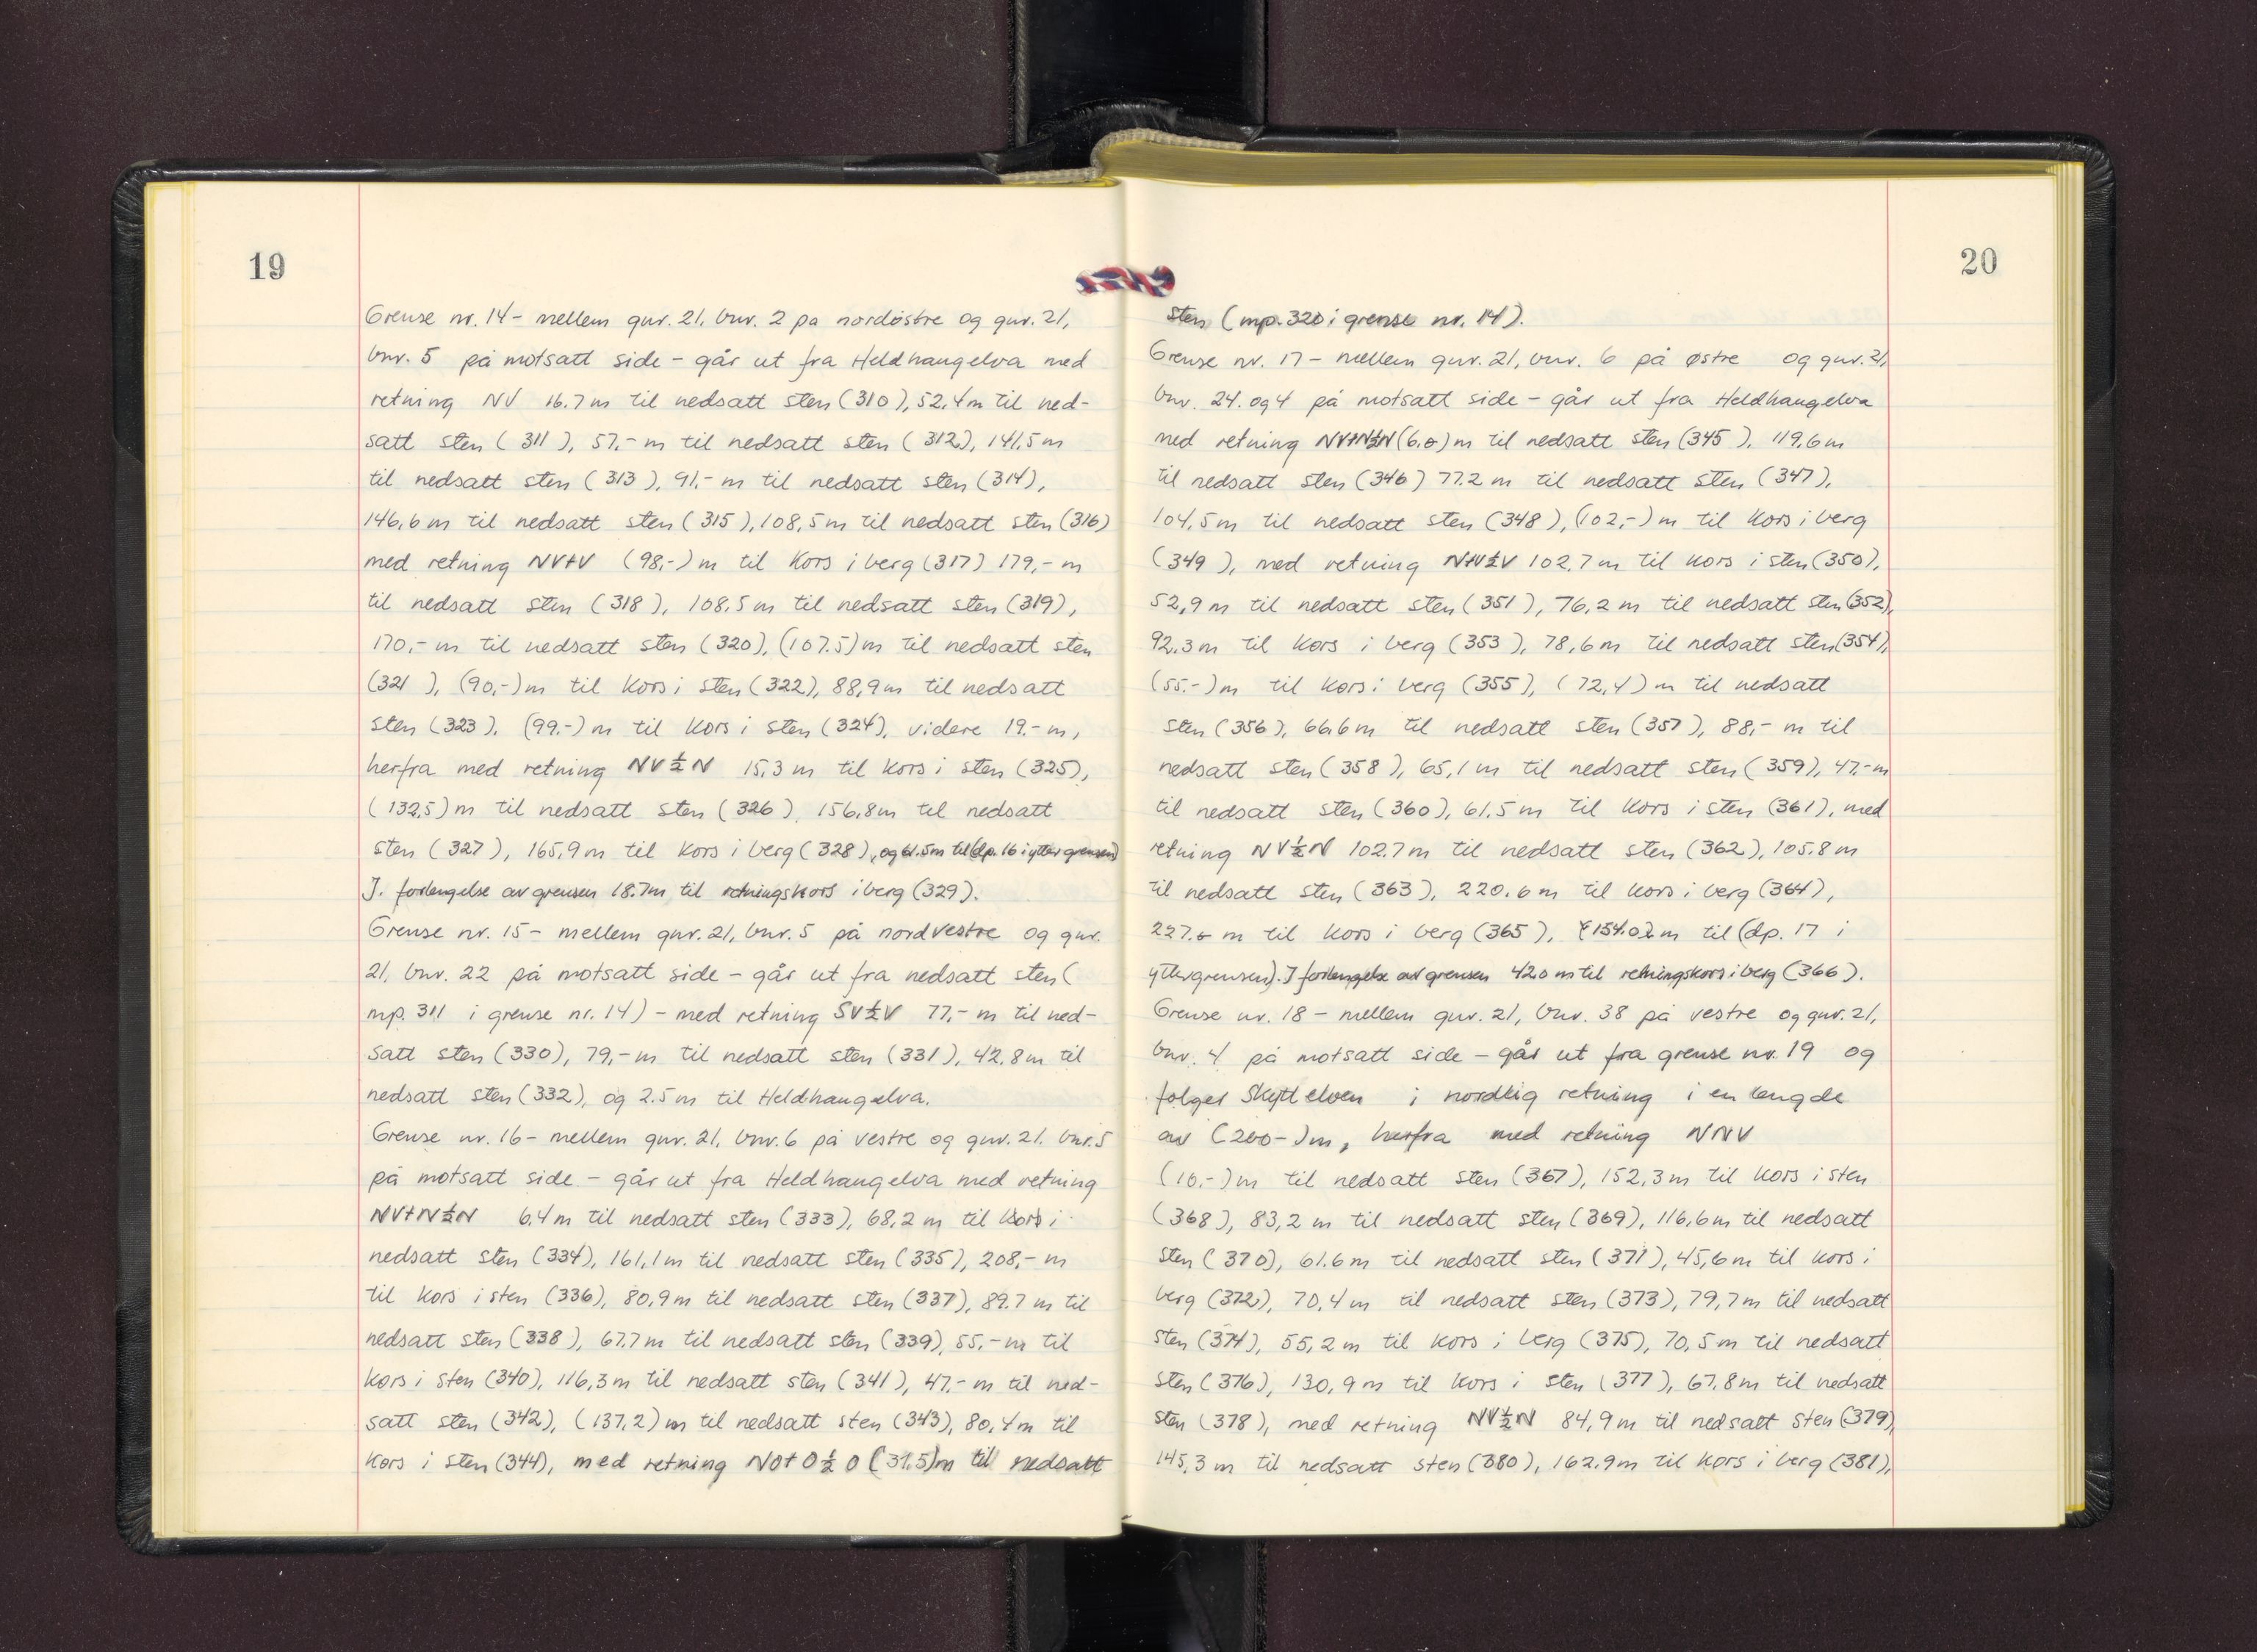 19
Grense nr. 14 - mellem gnr. 21, bnr. 2 pa nordöstre og gnr. 21,
bnr. 5 på motsatt side - går ut fra Heldhaugelva med
retning NV 16.7 m til nedsatt sten (310), 52,4 m til ned-
satt sten (311), 57,- m til nedsatt sten (312), 141,5 m
til nedsatt sten (313), 91,- m til nedsatt sten (314),
146,6 m til nedsatt sten (315), 108,5 m til nedsatt sten (316)
med retning NVtV (98,-) m til kors i berg (317) 179,- m
til nedsatt sten (318), 108,5 m til nedsatt sten (319),
170,- m til nedsatt sten (320), (107.5) m til nedsatt sten
(321), (90,-) m til kors i sten (322), 88,9 m til nedsatt
sten (323), (99.-) m til kors i sten (324), videre 19,- m,
herfra med retning NV½N 15,3 m til kors i sten (325),
(132,5) m til nedsatt sten (326), 156,8 m til nedsatt
sten (327), 165,9 m til kors i berg (328), og 61.5m til (dp. 16 i yttergrensen)
I. forlengelse av grensen 18.7m til retningskors i berg (329).
Grense nr. 15 - mellem gnr. 21, bnr. 5 på nordvestre og gnr.
21, bnr. 22 på motsatt side - går ut fra nedsatt sten (
mp. 311 i grense nr. 14) - med retning SV½V 77,- m til ned-
satt sten (330), 79,- m til nedsatt sten (331), 42,8 m til
nedsatt sten (332), og 2.5 m til Heldhaugelva.
Grense nr. 16 - mellem gnr. 21, bnr. 6 på vestre og gnr. 21. bnr. 5
på motsatt side - går ut fra Heldhaugelva med retning
NVtN½N 6,4 m til nedsatt sten (333), 68,2 m til kors i
nedsatt sten (334), 161,1 m til nedsatt sten (335), 208,- m
til kors i sten (336), 80,9 m til nedsatt sten (337), 89.7 m til
nedsatt sten (338), 67.7 m til nedsatt sten (339), 55,- m til
kors i sten (340), 116,3 m til nedsatt sten (341), 47,- m til ned-
satt sten (342), (137,2) m til nedsatt sten (343), 80,4 m til
kors i sten (344), med retning NOtO½O (31.5) m til nedsatt
20
sten (mp. 320 i grense nr. 14).
Grense nr. 17 - mellem gnr. 21, bnr. 6 på østre og gnr. 21,
bnr. 24. og 4 på motsatt side - går ut fra Heldhaugelva
med retning NVtN½N (6,0) m til nedsatt sten (345), 119,6 m
til nedsatt sten (346) 77.2 m til nedsatt sten (347),
104,5 m til nedsatt sten (348), (102,-) m til kors i berg
(349), med retning NtV½V 102,7 m til kors i sten (350),
52,9 m til nedsatt sten (351), 76,2 m til nedsatt sten (352),
92.3 m til kors i berg (353), 78,6 m til nedsatt sten (354),
(55.-) m til kors i berg (355), (72,4) m til nedsatt
sten (356), 66,6 m til nedsatt sten (357), 88,- m til
nedsatt sten (358), 65,1 m til nedsatt sten (359), 47,- m
til nedsatt sten (360), 61,5 m til kors i sten (361), med
retning NV½N 102.7 m til nedsatt sten (362), 105.8 m
til nedsatt sten (363), 220.6 m til kors i berg (364),
227.6 m til kors i berg (365), (154.0) m til (dp. 17 i
yttergrensen). I forlengelse av grensen 42.0 m til retningskors i berg (366).
Grense nr. 18 - mellem gnr. 21, bnr. 38 på vestre og gnr. 21,
bnr. 4 på motsatt side - går ut fra grense nr. 19 og
følger Skyttelven i nordlig retning i en lengde
av (200-) m, herfra med retning NNV
(10,-) m til nedsatt sten (367), 152,3 m til kors i sten
(368), 83,2 m til nedsatt sten (369), 116,6 m til nedsatt
sten (370), 61.6 m til nedsatt sten (371), 45,6 m til kors i
berg (372), 70,4 m til nedsatt sten (373), 79,7 m til nedsatt
sten (374), 55,2 m til kors i berg (375), 70,5 m til nedsatt
sten (376), 130,9 m til kors i sten (377), 67,8 m til nedsatt
sten (378), med retning NV½N 84,9 m til nedsatt sten (379),
145,3 m til nedsatt sten (380), 162,9 m til kors i berg (381),